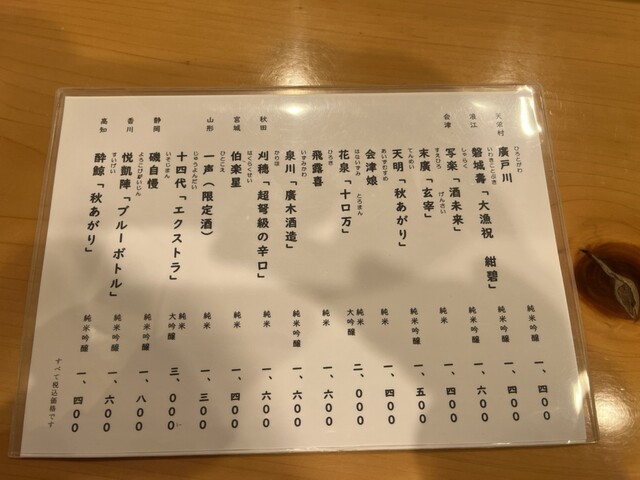 天栄村 廣戸川 純米吟醸 一、四〇〇
ひろとがわ
浪江 磐城壽「大漁祝 紺碧」 純米吟醸 一、四〇〇
いわきことぶき
会津 写楽「酒未来」 純米吟醸 一、六〇〇
しゃらく
末廣「玄宰」 純米 一、四〇〇
すえひろ げんさい
天明「秋あがり」 純米吟醸 一、五〇〇
てんめい
会津娘 純米 一、四〇〇
あいずむすめ
花泉「十ロ万」 純米大吟醸 二、〇〇〇
はないずみ とろまん
飛露喜 純米 一、六〇〇
ひろき
泉川「廣木酒造」 純米吟醸 一、六〇〇
いずみかわ
秋田 刈穂「超弩級の辛口」 純米 一、六〇〇
かりほ
宮城 伯楽星 純米 一、四〇〇
はくらくせい
山形 一声（限定酒） 純米 一、三〇〇
ひとこえ
十四代「エクストラ」 純米大吟醸 三、〇〇〇
じゅうよんだい
静岡 磯自慢 純米吟醸 一、八〇〇
いそじまん
香川 悦凱陣「ブルーボトル」 純米吟醸 一、六〇〇
よろこびがいじん
高知 酔鯨「秋あがり」 純米吟醸 一、四〇〇
すいげい
すべて税込価格です